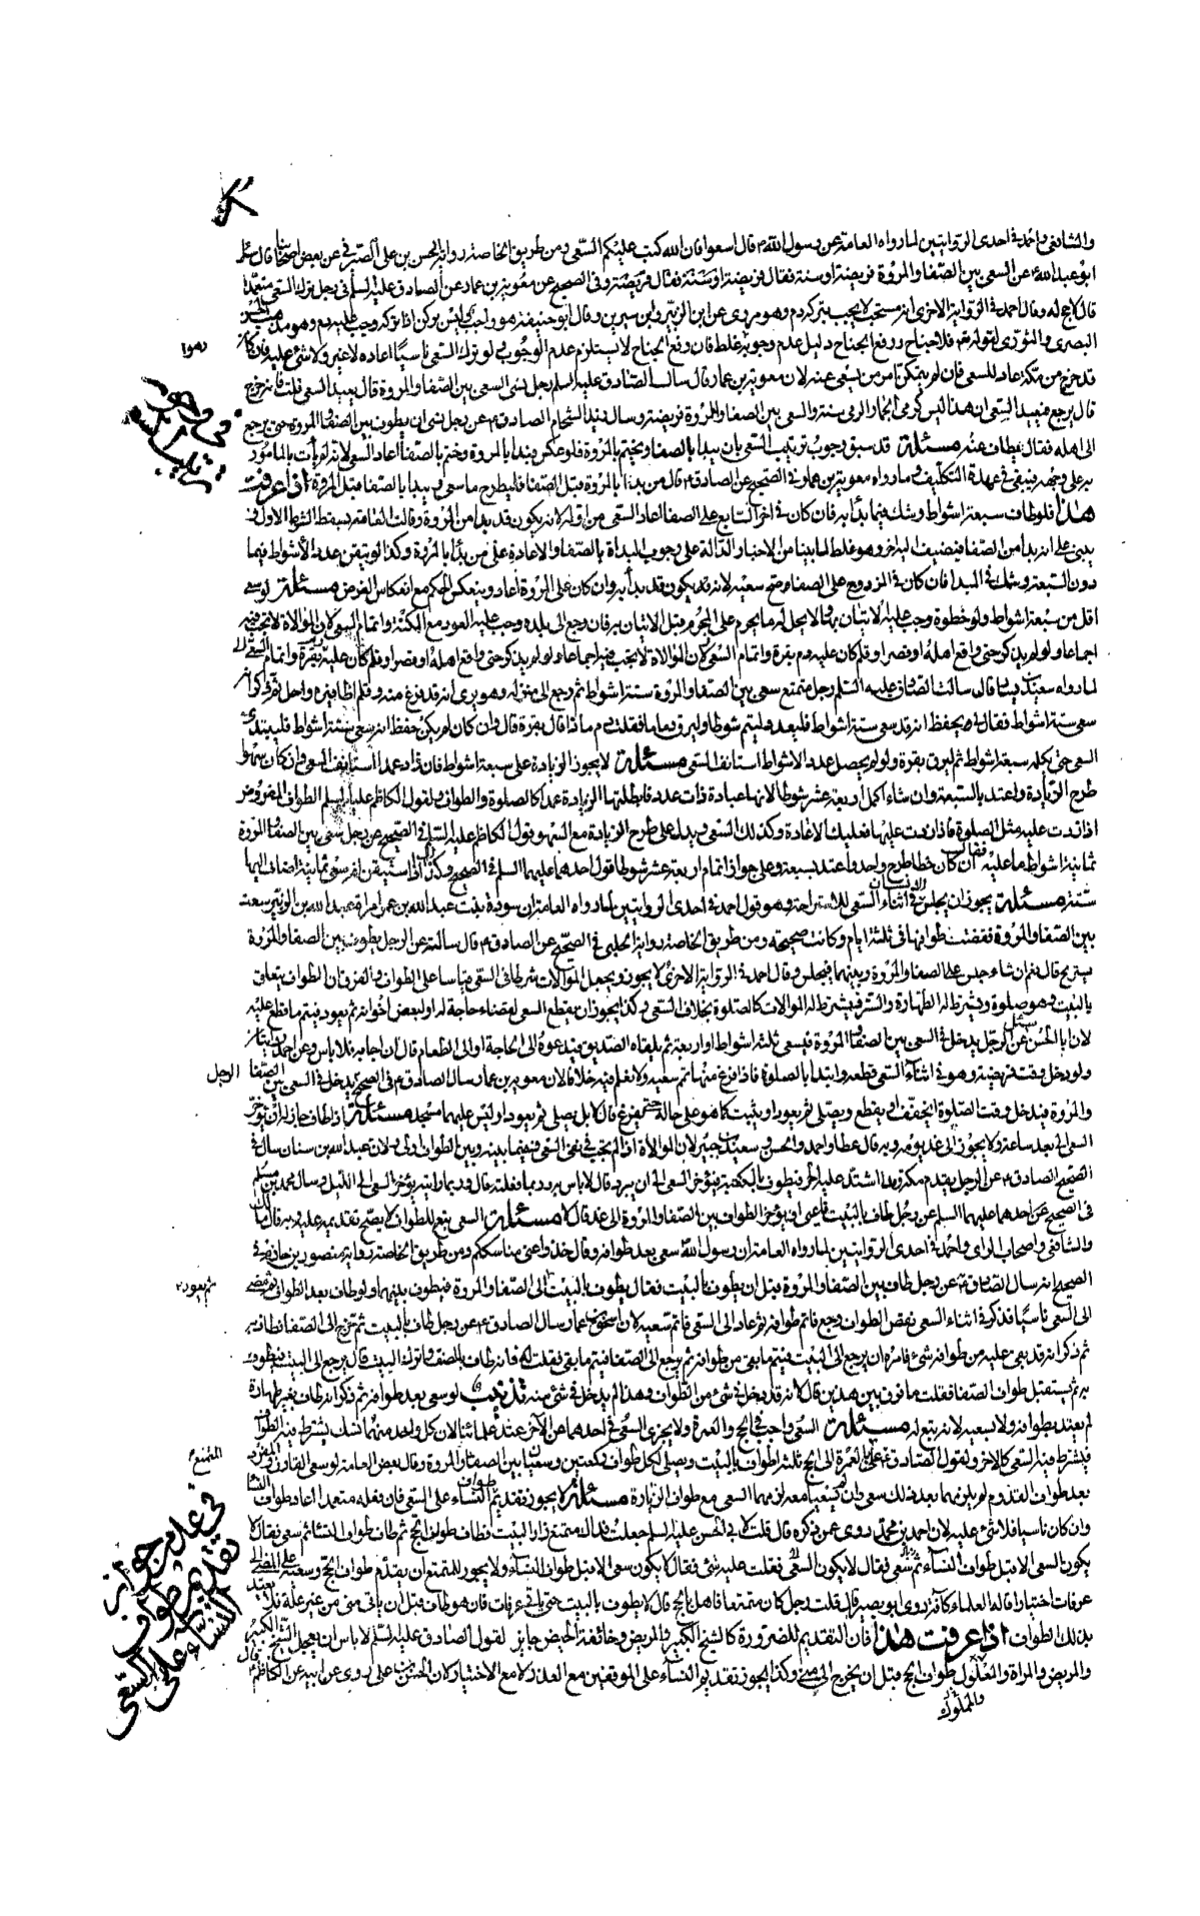 والشافعي واحمد في احدى الروايتين لما رواه العامة عن رسول الله ص قال اسعوا فان الله كتب عليكم السعي ومن طريق الخاصة رواية الحسن بن علي الصيرفي عن بعض اصحابنا قال سئل
ابو عبد الله ع عن السعي بين الصفا والمروة فريضة او سنة فقال فريضة او سنة فقال فريضة وفي الصحيح عن معوية بن عمار عن الصادق عليه السلم في رجل ترك السعي متعمدا
قال لا حج له وقال احمد في الرواية الاخرى انه مستحب لا يجب بتركه دم وهو مروي عن ابن الزبير وابن سيرين وقال ابو حنيفة هو واجب وليس بركن اذا تركه وجب عليه دم وهو مذهب الحسن
البصري والثوري لقوله تعالى فلا جناح ورفع الجناح دليل عدم وجوبه غلط فان رفع الجناح لا يستلزم عدم الوجوب ولو ترك السعي ناسيا اعاده لا غير ولا شئ عليه فان كان
قد خرج من مكة عاد للسعي فان لم يتمكن امر من يسعى عنه لان معوية بن عمار قال سالت الصادق عليه السلم رجل نسي السعي بين الصفا والمروة قال يعيد السعي قلت فانه خرج
قال يرجع فيعيد السعي ان هذا ليس كرمي الجمار الرمي سنة والسعي بين الصفا والمروة فريضة وسال زيد الشحام الصادق ع عن رجل نسي ان يطوف بين الصفا والمروة حتى يرجع
الى اهله فقال يطاف عنه مسئلة قد سبق وجوب ترتيب السعي بان يبدا بالصفا ويختم بالمروة فلو عكس فبدا بالمروة وختم بالصفا اعاد السعي لانه لم يات بالمامور
به على وجهه فيبقى في عهدة التكليف وما رواه معوية بن عمار في الصحيح عن الصادق ع قال من بدا بالمروة قبل الصفا فليطرح ما سعى ويبدا بالصفا قبل المروة اذا عرفت
هذا فلو طاف سبعة اشواط وشك فيما بدا به فان كان في اخر السابع على الصفا اعاد السعي من اوله لانه يكون قد بدا من المروة وقالت العامة يسقط الشوط الاول و
يبني على انه بدا من الصفا فيضيف اليه اخر وهو غلط لما بينا من الاخبار الدالة على وجوب البداة بالصفا والاعادة على من بدا بالمروة وكذا لو تيقن عدد الاشواط فيما
دون السبعة وشك في المبدا فان كان في المزدوج على الصفا صح سعيه لانه يكون قد بدا به وان كان على المروة اعاد وينعكس الحكم مع انعكاس الفرض مسئلة لو سعى
اقل من سبعة اشواط ولو خطوة وجب عليه الاتيان بها ولا يحل له ما يحرم على المحرم قبل الاتيان به فان رجع الى بلده وجب عليه العود مع المكنة واتمام السعي لان الموالاة لا تجب فيه
اجماعا ولو لم يذكر حتى واقع اهله او قصر او قلم كان عليه دم بقرة واتمام السعي
لما رواه سعيد بن يسار قال سالت الصادق عليه السلم رجل متمتع سعى بين الصفا والمروة ستة اشواط ثم رجع الى منزله وهو يرى انه قد فرغ منه وقلم اظافيره واحل ثم ذكر انه
سعى ستة اشواط فقال لي يحفظ انه قد سعى ستة اشواط فليعد وليتم شوطا وليرق دما فقلت دم ماذا قال بقرة قال وان كان لم يكن حفظ انه سعى ستة اشواط فليبتدئ
السعي حتى يكمله سبعة اشواط ثم ليرق بقرة ولو لم يحصل عدد الاشواط استانف السعي مسئلة لا يجوز الزيادة على سبعة اشواط فان زاد عمدا استانف السعي وان كان سهوا
طرح الزيادة واعتد بالسبعة وان شاء اكمل اربعة عشر شوطا لانها عبادة ذات عدد فابطلتها الزيادة عمدا كالصلوة والطواف ولقول الكاظم عليه السلم الطواف المفروض
اذا زدت عليه مثل الصلوة فاذا زدت عليها فعليك الاعادة وكذلك السعي ويدل على طرح الزيادة مع السهو قول الكاظم عليه السلم في الصحيح عن رجل سعى بين الصفا والمروة
ثمانية اشواط ما عليه فقال ان كان خطا طرح واحدا واعتد بسبعة وعلى جواز اتمام اربعة عشر شوطا قول احدهما عليهما السلم في الصحيح وكذا اذا استيقن انه سعى ثمانية اضاف اليها
ستة مسئلة يجوز ان يجلس الانسان في اثناء السعي للاستراحة وهو قول احمد في احدى الروايتين لما رواه العامة ان سودة بنت عبد الله بن عمر امراة عروة بن الزبير سعت
بين الصفا والمروة فقضت طوافها في ثلثة ايام وكانت ضخمة ومن طريق الخاصة رواية الحلبي في الصحيح عن الصادق ع قال سالته عن الرجل يطوف بين الصفا والمروة
يستريح قال نعم ان شاء جلس على الصفا والمروة وبينهما فيجلس وقال احمد في الرواية الاخرى لا يجوز ويجعل الموالات شرطا في السعي قياسا على الطواف والفرق ان الطواف يتعلق
بالبيت وهو صلوة ويشترط له الطهارة والستر فيشترط له الموالات كالصلوة بخلاف السعي وكذا يجوز ان يقطع السعي لقضاء حاجة له او لبعض اخوانه ثم يعود فيتم ما قطع عليه
لان ابا الحسن ع سئل عن الرجل يدخل في السعي بين الصفا والمروة فيسعى ثلثة اشواط او اربعة ثم يلقاه الصديق فيدعوه الى الحاجة او الى الطعام قال ان اجابه فلا باس وعن احمد روايتان
ولو دخل وقت فريضة وهو في اثناء السعي قطعه وابتدا بالصلوة فاذا فرغ منها تم سعيه ولا نعلم فيه خلافا لان معوية بن عمار سال الصادق ع في الصحيح الرجل يدخل في السعي بين الصفا
والمروة فيدخل وقت الصلوة ايخفف او يقطع ويصلي ثم يعود او يثبت كما هو على حاله حتى يفرغ قال لا بل يصلي ثم يعود او ليس عليهما مسجد مسئلة اذا طاف جاز له ان يؤخر
السعي الى بعد ساعة ولا يجوز الى غد يومه وبه قال عطا واحمد والحسن وسعيد بن جبير لان الموالاة اذا لم تجب في نفس السعي ففيما بينه وبين الطواف اولى ولان عبد الله بن سنان سال في
الصحيح الصادق ع عن الرجل يقدم مكة وقد اشتد عليه الحر فيطوف بالكعبة فيؤخر السعي الى ان يبرد قال لا باس به وربما فعلته قال وربما رايته يؤخر السعي الى الليل وسال محمد بن مسلم
في الصحيح عن احدهما عليهما السلم عن رجل طاف بالبيت فاعيى ايؤخر الطواف بين الصفا والمروة الى غد قال لا مسئلة السعي تبع للطواف لا يصح تقديمه عليه وبه قال مالك
والشافعي واصحاب الراى واحمد في احدى الروايتين لما رواه العامة ان رسول الله ص سعى بعد طوافه وقال خذوا عني مناسككم ومن طريق الخاصة رواية منصور بن حازم في
الصحيح انه سال الصادق ع عن رجل طاف بين الصفا والمروة قبل ان يطوف بالبيت فقال يطوف بالبيت ثم يعود الى الصفا والمروة فيطوف بينهما ولو طاف بعد الطواف ثم مضى
الى السعي ناسيا فذكر في اثناء السعي نقص الطواف رجع فاتم طوافه ثم عاد الى السعي فاتم سعيه لان اسحق بن عمار سال الصادق ع عن رجل طاف بالبيت ثم خرج الى الصفا فطاف به
ثم ذكر انه قد بقي عليه من طوافه شئ فامره ان يرجع الى البيت فيتم ما بقي من طوافه ثم يرجع الى الصفا فيتم ما بقي فقلت له فانه طاف بالصفا وترك البيت قال يرجع الى البيت فيطوف
به ثم يستقبل طواف الصفا فقلت ما فرق بين هذين قال لانه قد دخل في شئ من الطواف وهذا لم يدخل في شئ منه تذنيب لو سعى بعد طوافه ثم ذكر انه طاف بغير طهارة
لم يعتد بطوافه ولا بسعيه لانه تبع له مسئلة السعي واجب في الحج والعمرة ولا يجزي السعي في احدهما عن الاخر عند علمائنا لان كل واحد منهما نسك يشترط فيه الطواف
فيشترط فيه السعي كالاخر ولقول الصادق ع على المتمتع بالعمرة الى الحج ثلثة اطواف بالبيت ويصلي لكل طواف ركعتين وسعيان بين الصفا والمروة وقال بعض العامة لو سعى القارن والمفرد
بعد طواف القدوم لم يلزمهما بعد ذلك سعى وان لم يسعيا معه لزمهما السعي مع طواف الزيارة مسئلة لا يجوز تقديم طواف النساء على السعي فان فعله متعمدا اعاد طواف النساء
وان كان ناسيا فلا شئ عليه لان احمد بن محمد روى عمن ذكره قال قلت لابي الحسن عليه السلم جعلت فداك متمتع زار البيت فطاف طواف الحج ثم طاف طواف النساء ثم سعى فقال لا
يكون السعي الا قبل طواف النساء ثم سعى فقال لا يكون السعي فقلت عليه شئ فقال لا يكون سعي الا قبل طواف النساء ولا يجوز للمتمتع ان يقدم طواف الحج وسعيه على المضي الى
عرفات اختيارا قاله العلماء كافة روى ابو بصير قال قلت رجل كان متمتعا فاهل بالحج قال لا يطوف بالبيت حتى ياتي عرفات فان هو طاف قبل ان ياتي منى من غير علة فلا يعتد
بذلك الطواف اذا عرفت هذا فان التقديم للضرورة كالشيخ الكبير والمريض وخائفة الحيض جايز لقول الصادق عليه السلم لا باس ان يعجل الشيخ الكبير
والمريض والمراة والمعلول طواف الحج قبل ان يخرج الى منى وكذا يجوز تقديم النساء على الموقفين مع العذر لا مع الاختيار لان الحسن بن علي روى عن ابيه عن الكاظم ع قال
والمملوك
وهو
في وجوب ترتيب السعي
الرجل
ثم يعود
المتمتع
في عدم جواز
تقديم طواف
النساء على السعي